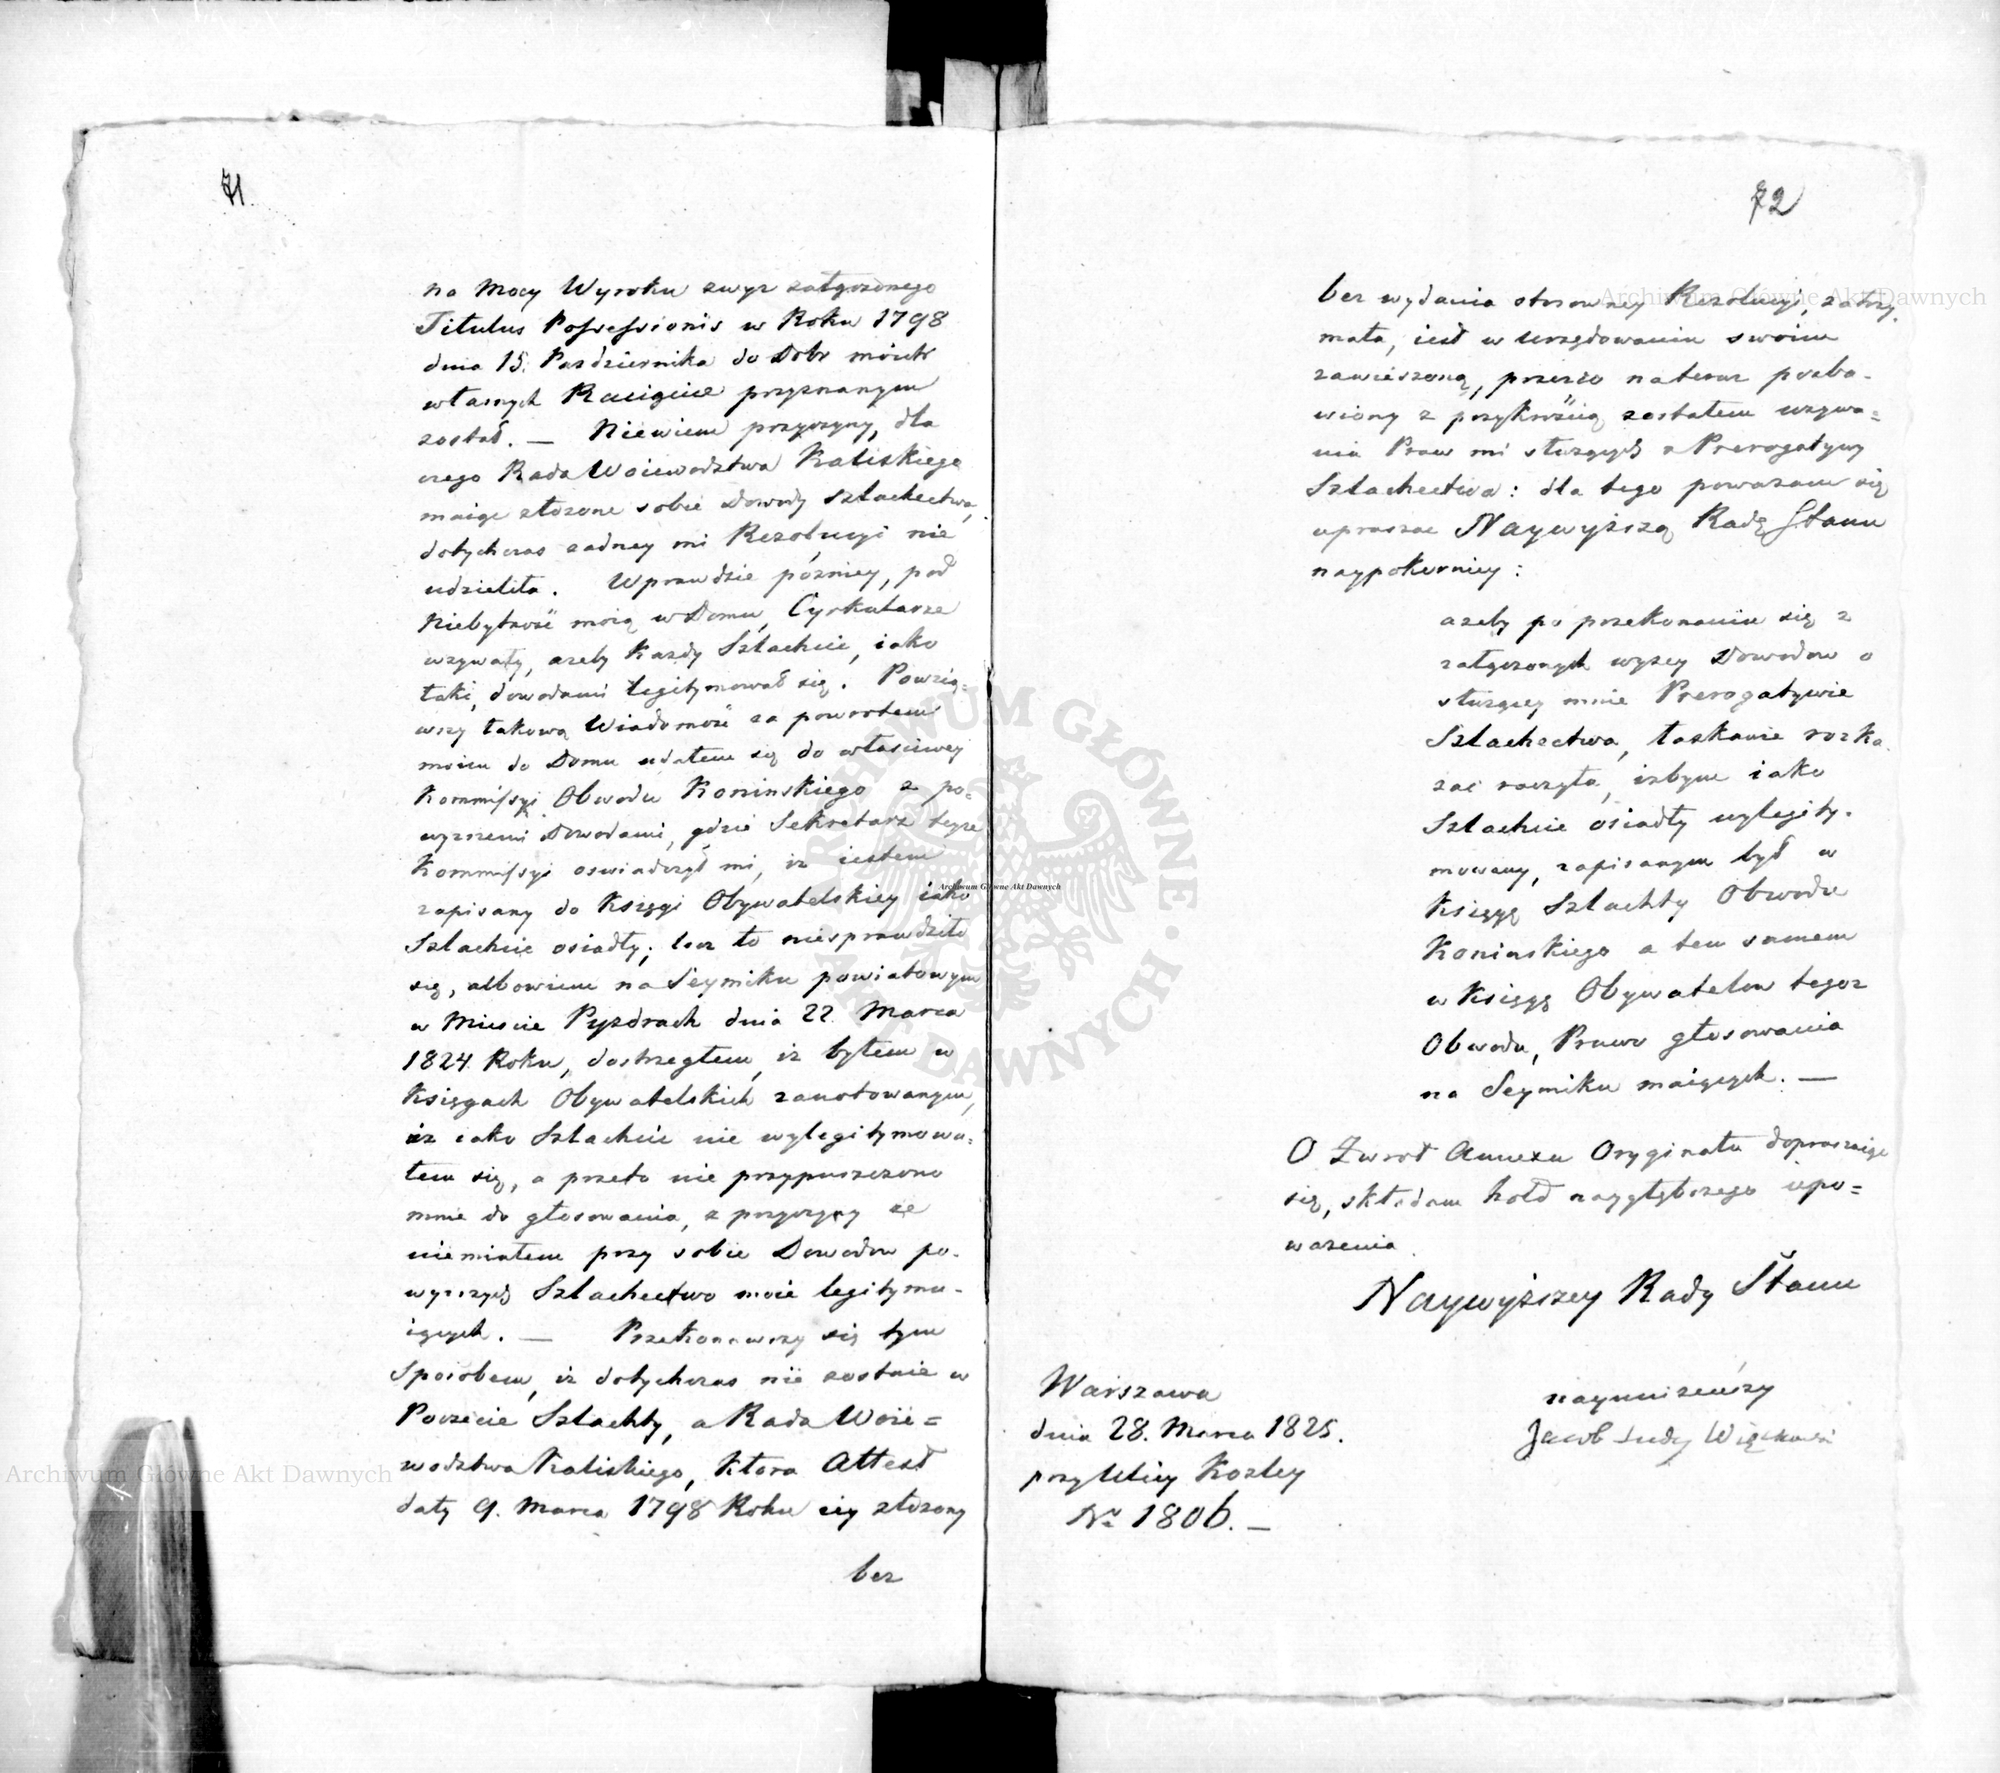 71.
na mocy Wyroku zwyż załączonego
Titulus Possessionis w Roku 1798
dnia 15. Pazdziernika do Dobr moich
własnych Racięcice przyznanym
został. — Niewiem przyczyny, dla
czego Rada Woiewodztwa Kaliskiego
maiąc złozone sobie Dowody Szlachectwa,
dotychczas zadney mi Rezolucyi nie
udzieliła. Wprawdzie pózniey, pod
Niebytność moią w Domu, Cyrkularze
wzywały, azeby Kazdy Szlachcic, iako
taki, dowodami legitymował się. Powzią-
wszy takową Wiadomość za powrotem
moim do Domu udałem się do właściwey
Kommissyi Obwodu Koninskiego z po-
wyzszemi Dowodami, gdzie Sekretarz teyze
Kommissyi oswiadczył mi, iz iestem
zapisany do Księgi Obywatelskiey iako
Szlachcic osiadły; lecz to niesprawdziło
się, albowiem na Seymiku powiatowym
w Miescie Pyzdrach dnia 22. Marca
1824 Roku, dostrzegłem, iz byłem w
Księgach Obywatelskich zanotowanym,
iz iako Szlachcic nie wylegitymowa-
łem się, a przeto nie przypuszczono
mnie do głosowania, z przyczyny ze
niemiałem przy sobie Dowodow po-
wyzszych Szlachectwo moie legitymu-
iących. — Przekonawszy się tym
Sposobem, iz dotychczas nie zostaie w
Poczecie Szlachty, a Rada Woie=
wodztwa Kaliskiego, Ktora Attest
daty 9. Marca 1798 Roku iey złozony
bez
72
bez wydania stosowney Rezolucyi, zatrzy-
mała, iest w urzędowaniu swoim
zawieszoną, przeto nateraz pozba-
wiony z przykrością zostałem uzywa=
nia Praw mi słuzących z Prerogatywy
Szlachectwa: dla tego powazam się
upraszac Naywyższą Radę Stanu
naypokorniey:
azeby po przekonaniu się z
załączonych wyzey Dowodow o
słuzącey mnie Prerogatywie
Szlachectwa, łaskawie rozka-
zac raczyła, izbym iako
Szlachcic osiadły wylegity-
mowany, zapisanym był w
Księgę Szlachty Obwodu
Koninskiego a tem samem
w Księgę Obywatelow tegoz
Obwodu, Prawo głosowania
na Seymiku maiących. —
O Zwrot Annexu Oryginału dopraszaiąc
się, składam hołd naygłębszego upo=
wazenia
Naywyższey Rady Stanu
Warszawa
dnia 28. Marca 1825.
przy Ulicy Kozley
No 1806. —
nayunizenszy
Jacob Judy
Archiwum Główne Akt Dawnych
Archiwum Główne Akt Dawnych
Archiwum Główne Akt Dawnych
ARCHIWUM GŁÓWNE • AKT DAWNYCH •